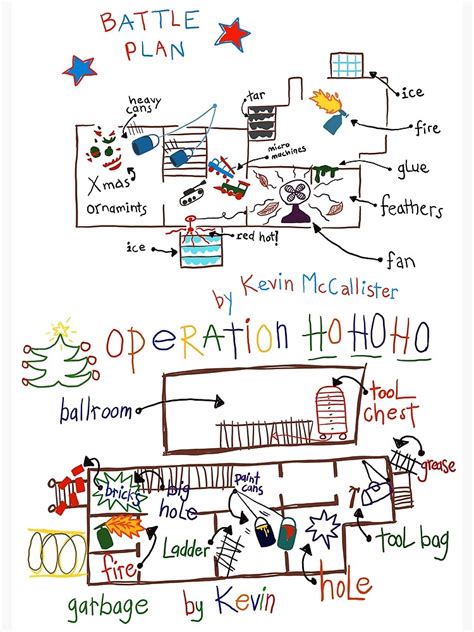 BATTLE
PLAN
heavy
cans
tar
ice
fire
micro
machines
glue
Xmas
ornamints
feathers
ice
red hot!
fan
by Kevin McCallister
OPERATION HOHOHO
ballroom
tool
chest
grease
brick
big
hole
paint
cans
Ladder
tool bag
fire
hole
garbage
by Kevin